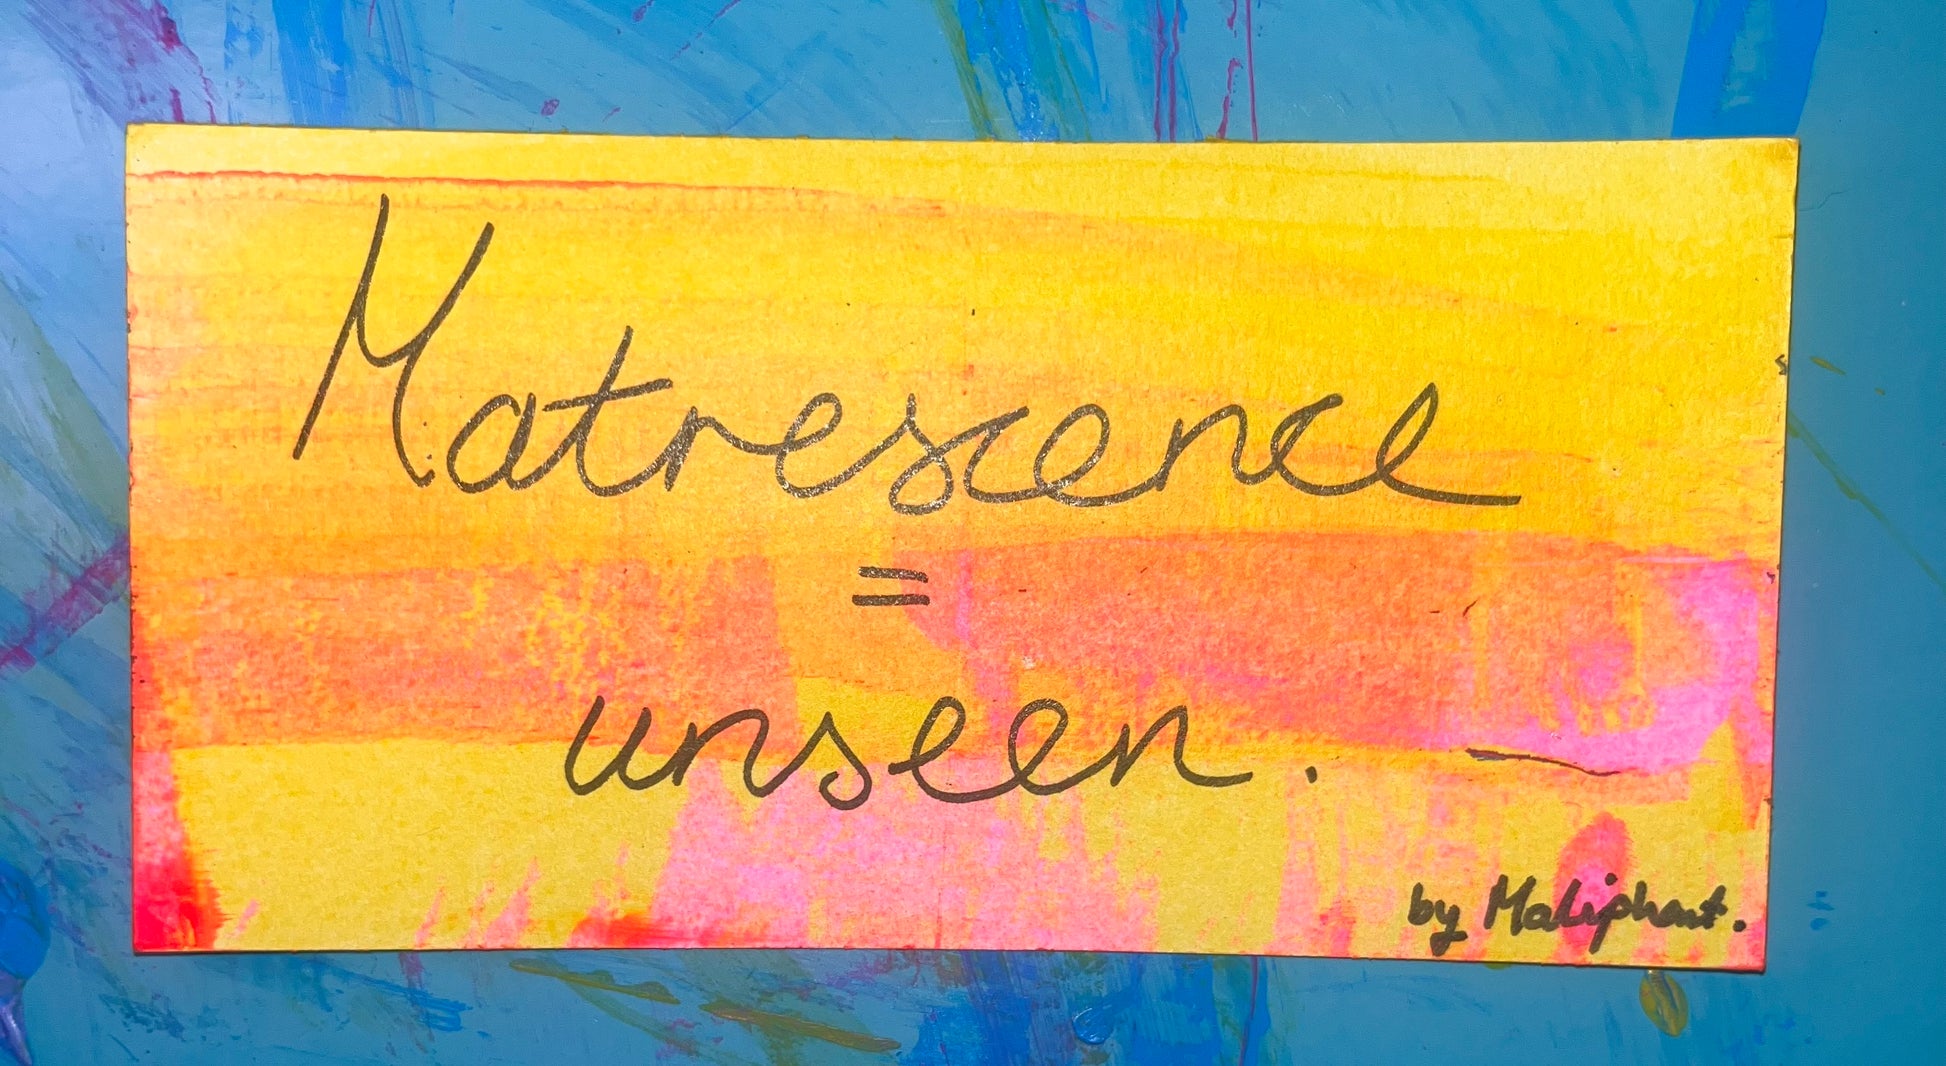 Matrescence
=
unseen.
by Maliphant.